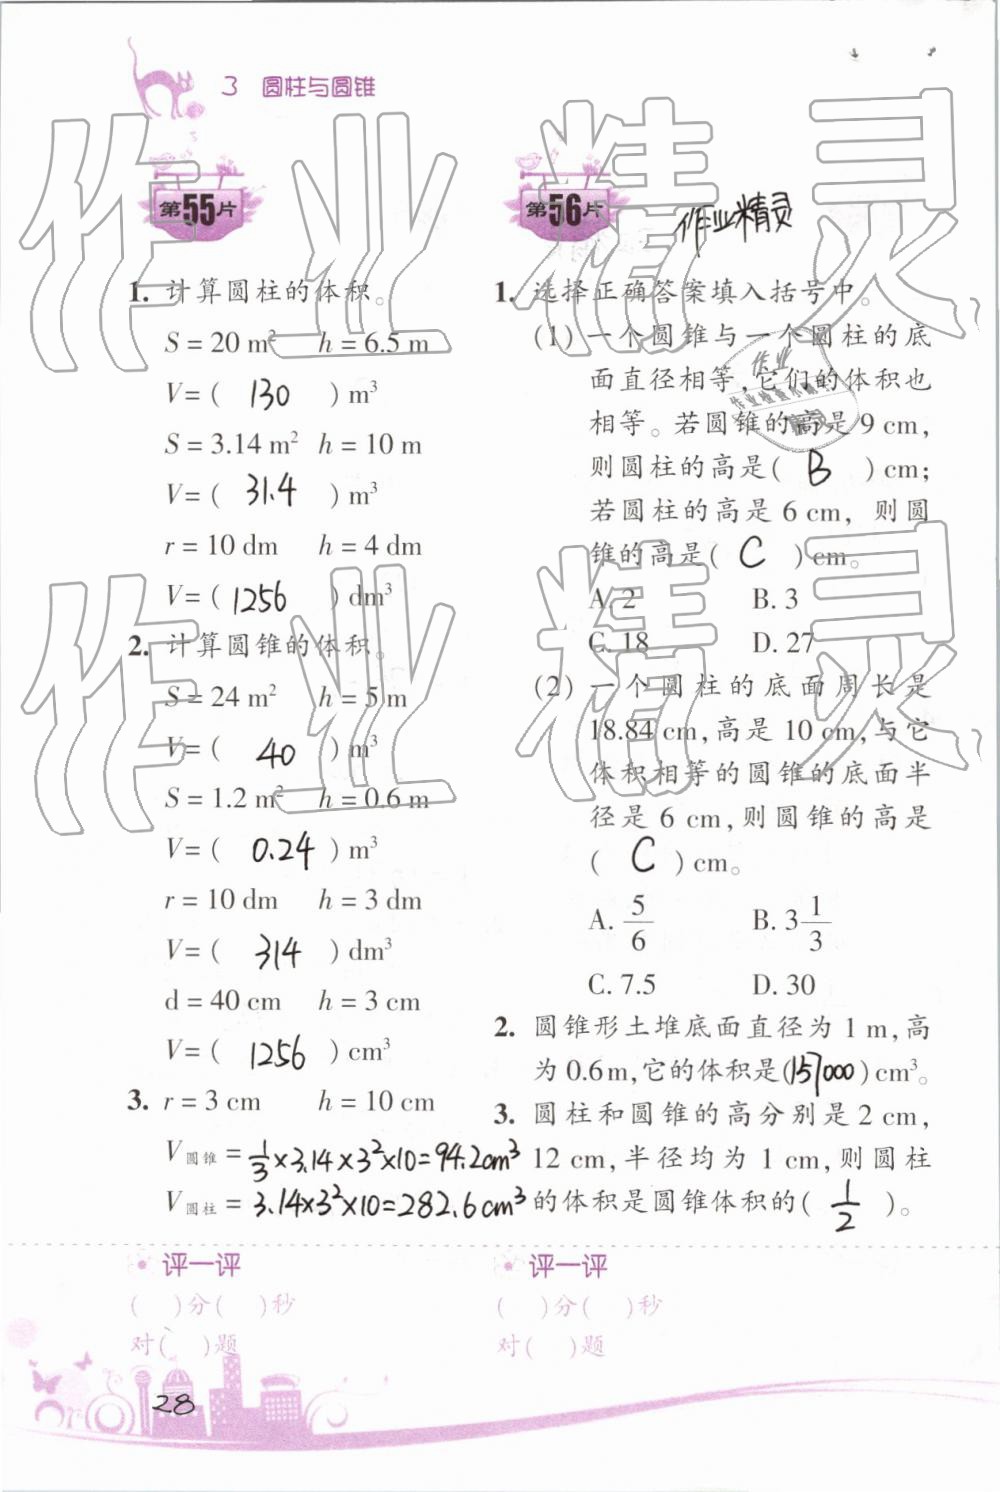 3 圆柱与圆锥
第55片
1. 计算圆柱的体积。
S = 20 m² h = 6.5 m
V = ( 130 ) m³
S = 3.14 m² h = 10 m
V = ( 31.4 ) m³
r = 10 dm h = 4 dm
V = ( 1256 ) dm³
2. 计算圆锥的体积。
S = 24 m² h = 5 m
V = ( 40 ) m³
S = 1.2 m² h = 0.6 m
V = ( 0.24 ) m³
r = 10 dm h = 3 dm
V = ( 314 ) dm³
d = 40 cm h = 3 cm
V = ( 1256 ) cm³
3. r = 3 cm h = 10 cm
V圆锥 = 1/3×3.14×3²×10=94.2cm³
V圆柱 = 3.14×3²×10=282.6cm³
评一评
( )分( )秒
对( )题
28
第56片
作业精灵
1. 选择正确答案填入括号中。
(1) 一个圆锥与一个圆柱的底
面直径相等,它们的体积也
相等。若圆锥的高是 9 cm,
则圆柱的高是( B )cm;
若圆柱的高是 6 cm, 则圆
锥的高是( C )cm。
A. 2 B. 3
C. 18 D. 27
(2) 一个圆柱的底面周长是
18.84 cm,高是 10 cm,与它
体积相等的圆锥的底面半
径是 6 cm,则圆锥的高是
( C )cm。
A. 5/6 B. 3 1/3
C. 7.5 D. 30
2. 圆锥形土堆底面直径为 1 m,高
为 0.6m,它的体积是(157000)cm³。
3. 圆柱和圆锥的高分别是 2 cm,
12 cm,半径均为 1 cm,则圆柱
的体积是圆锥体积的( 1/2 )。
评一评
( )分( )秒
对( )题
作业精灵
作业精灵
作业